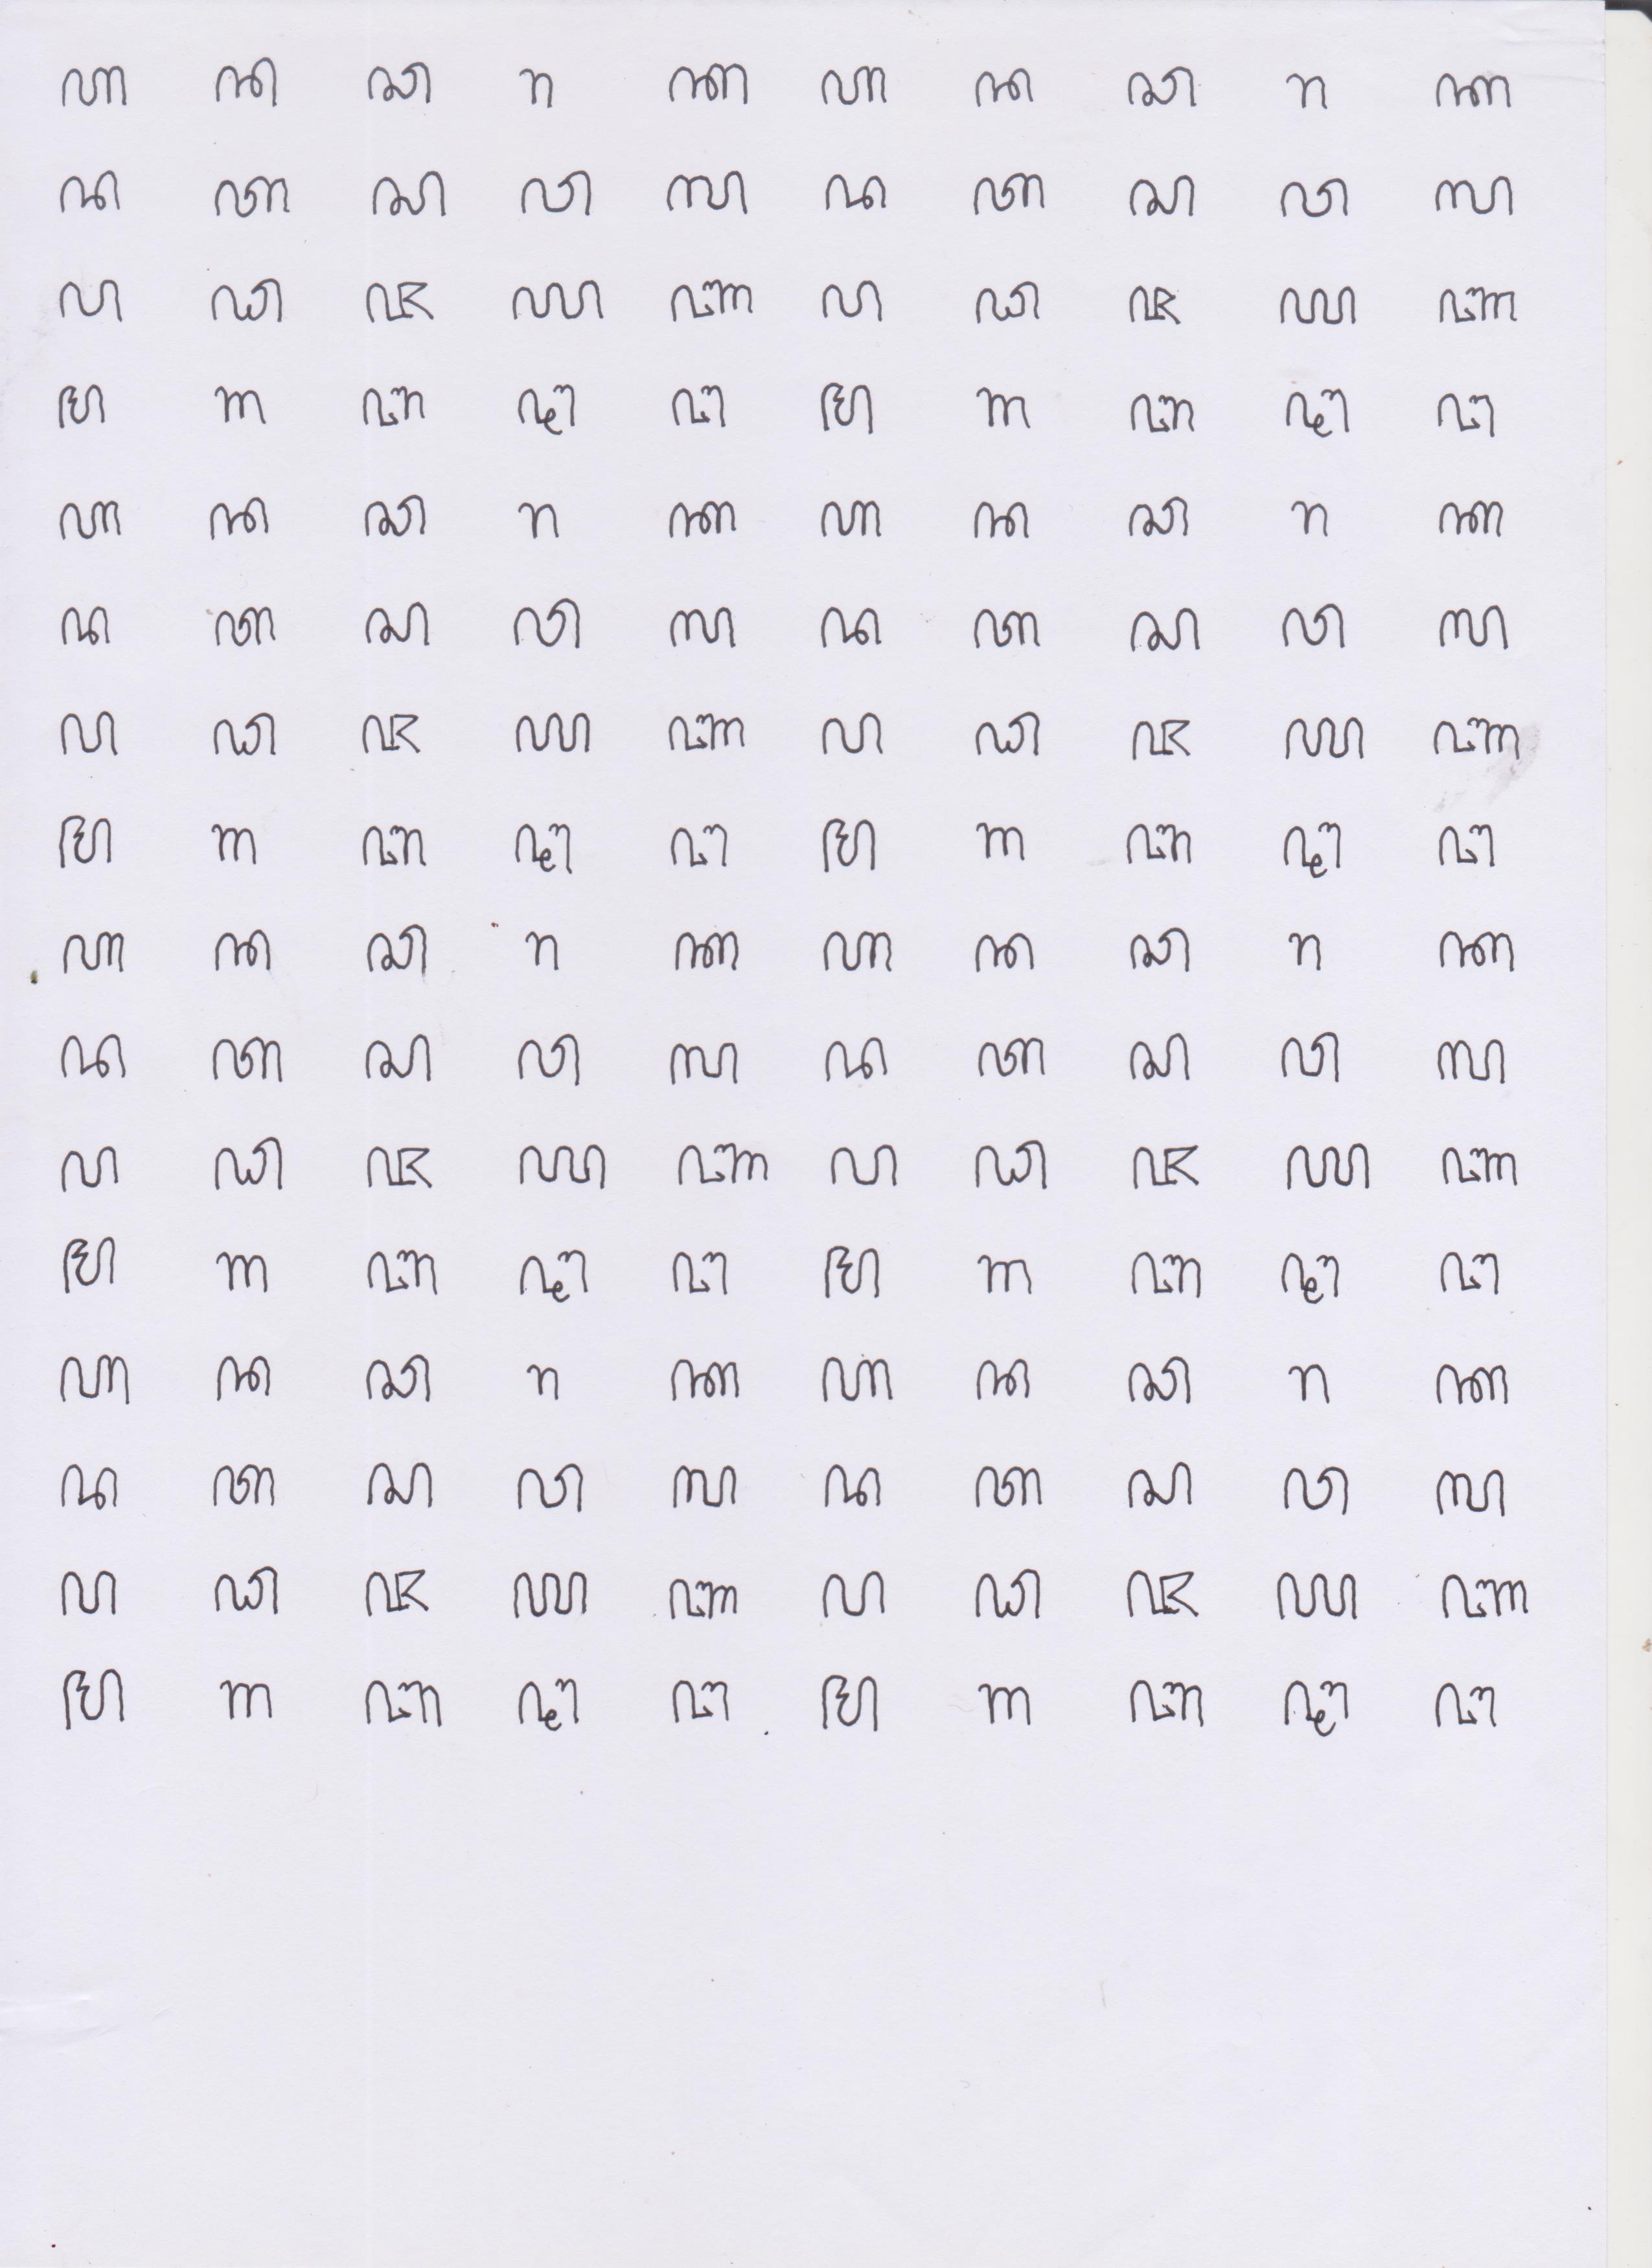 ꦲ ꦤ ꦕ ꦫ ꦏ ꦲ ꦤ ꦕ ꦫ ꦏ
ꦢ ꦠ ꦱ ꦮ ꦭ ꦢ ꦠ ꦱ ꦮ ꦭ
ꦥ ꦝ ꦗ ꦪ ꦚ ꦥ ꦝ ꦗ ꦪ ꦚ
ꦩ ꦒ ꦧ ꦛ ꦔ ꦩ ꦒ ꦧ ꦛ ꦔ
ꦲ ꦤ ꦕ ꦫ ꦏ ꦲ ꦤ ꦕ ꦫ ꦏ
ꦢ ꦠ ꦱ ꦮ ꦭ ꦢ ꦠ ꦱ ꦮ ꦭ
ꦥ ꦝ ꦗ ꦪ ꦚ ꦥ ꦝ ꦗ ꦪ ꦚ
ꦩ ꦒ ꦧ ꦛ ꦔ ꦩ ꦒ ꦧ ꦛ ꦔ
ꦲ ꦤ ꦕ ꦫ ꦏ ꦲ ꦤ ꦕ ꦫ ꦏ
ꦢ ꦠ ꦱ ꦮ ꦭ ꦢ ꦠ ꦱ ꦮ ꦭ
ꦥ ꦝ ꦗ ꦪ ꦚ ꦥ ꦝ ꦗ ꦪ ꦚ
ꦩ ꦒ ꦧ ꦛ ꦔ ꦩ ꦒ ꦧ ꦛ ꦔ
ꦲ ꦤ ꦕ ꦫ ꦏ ꦲ ꦤ ꦕ ꦫ ꦏ
ꦢ ꦠ ꦱ ꦮ ꦭ ꦢ ꦠ ꦱ ꦮ ꦭ
ꦥ ꦝ ꦗ ꦪ ꦚ ꦥ ꦝ ꦗ ꦪ ꦚ
ꦩ ꦒ ꦧ ꦛ ꦔ ꦩ ꦒ ꦧ ꦛ ꦔ